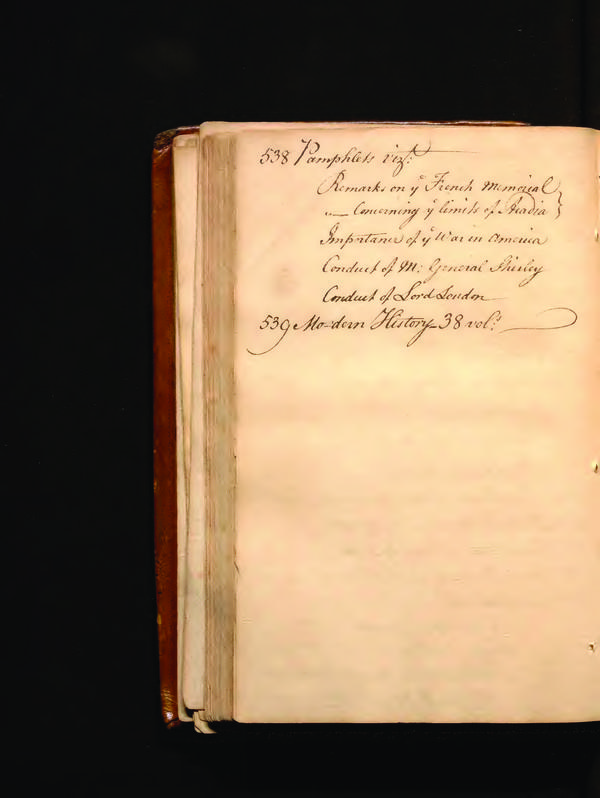 538 Pamphlets vizt:
Remarks on ye French Memorial
"— Concerning ye limits of Acadia
Importance of ye War in America
Conduct of M: General Shirley
Conduct of Lord Loudon
539 Modern History 38 vols